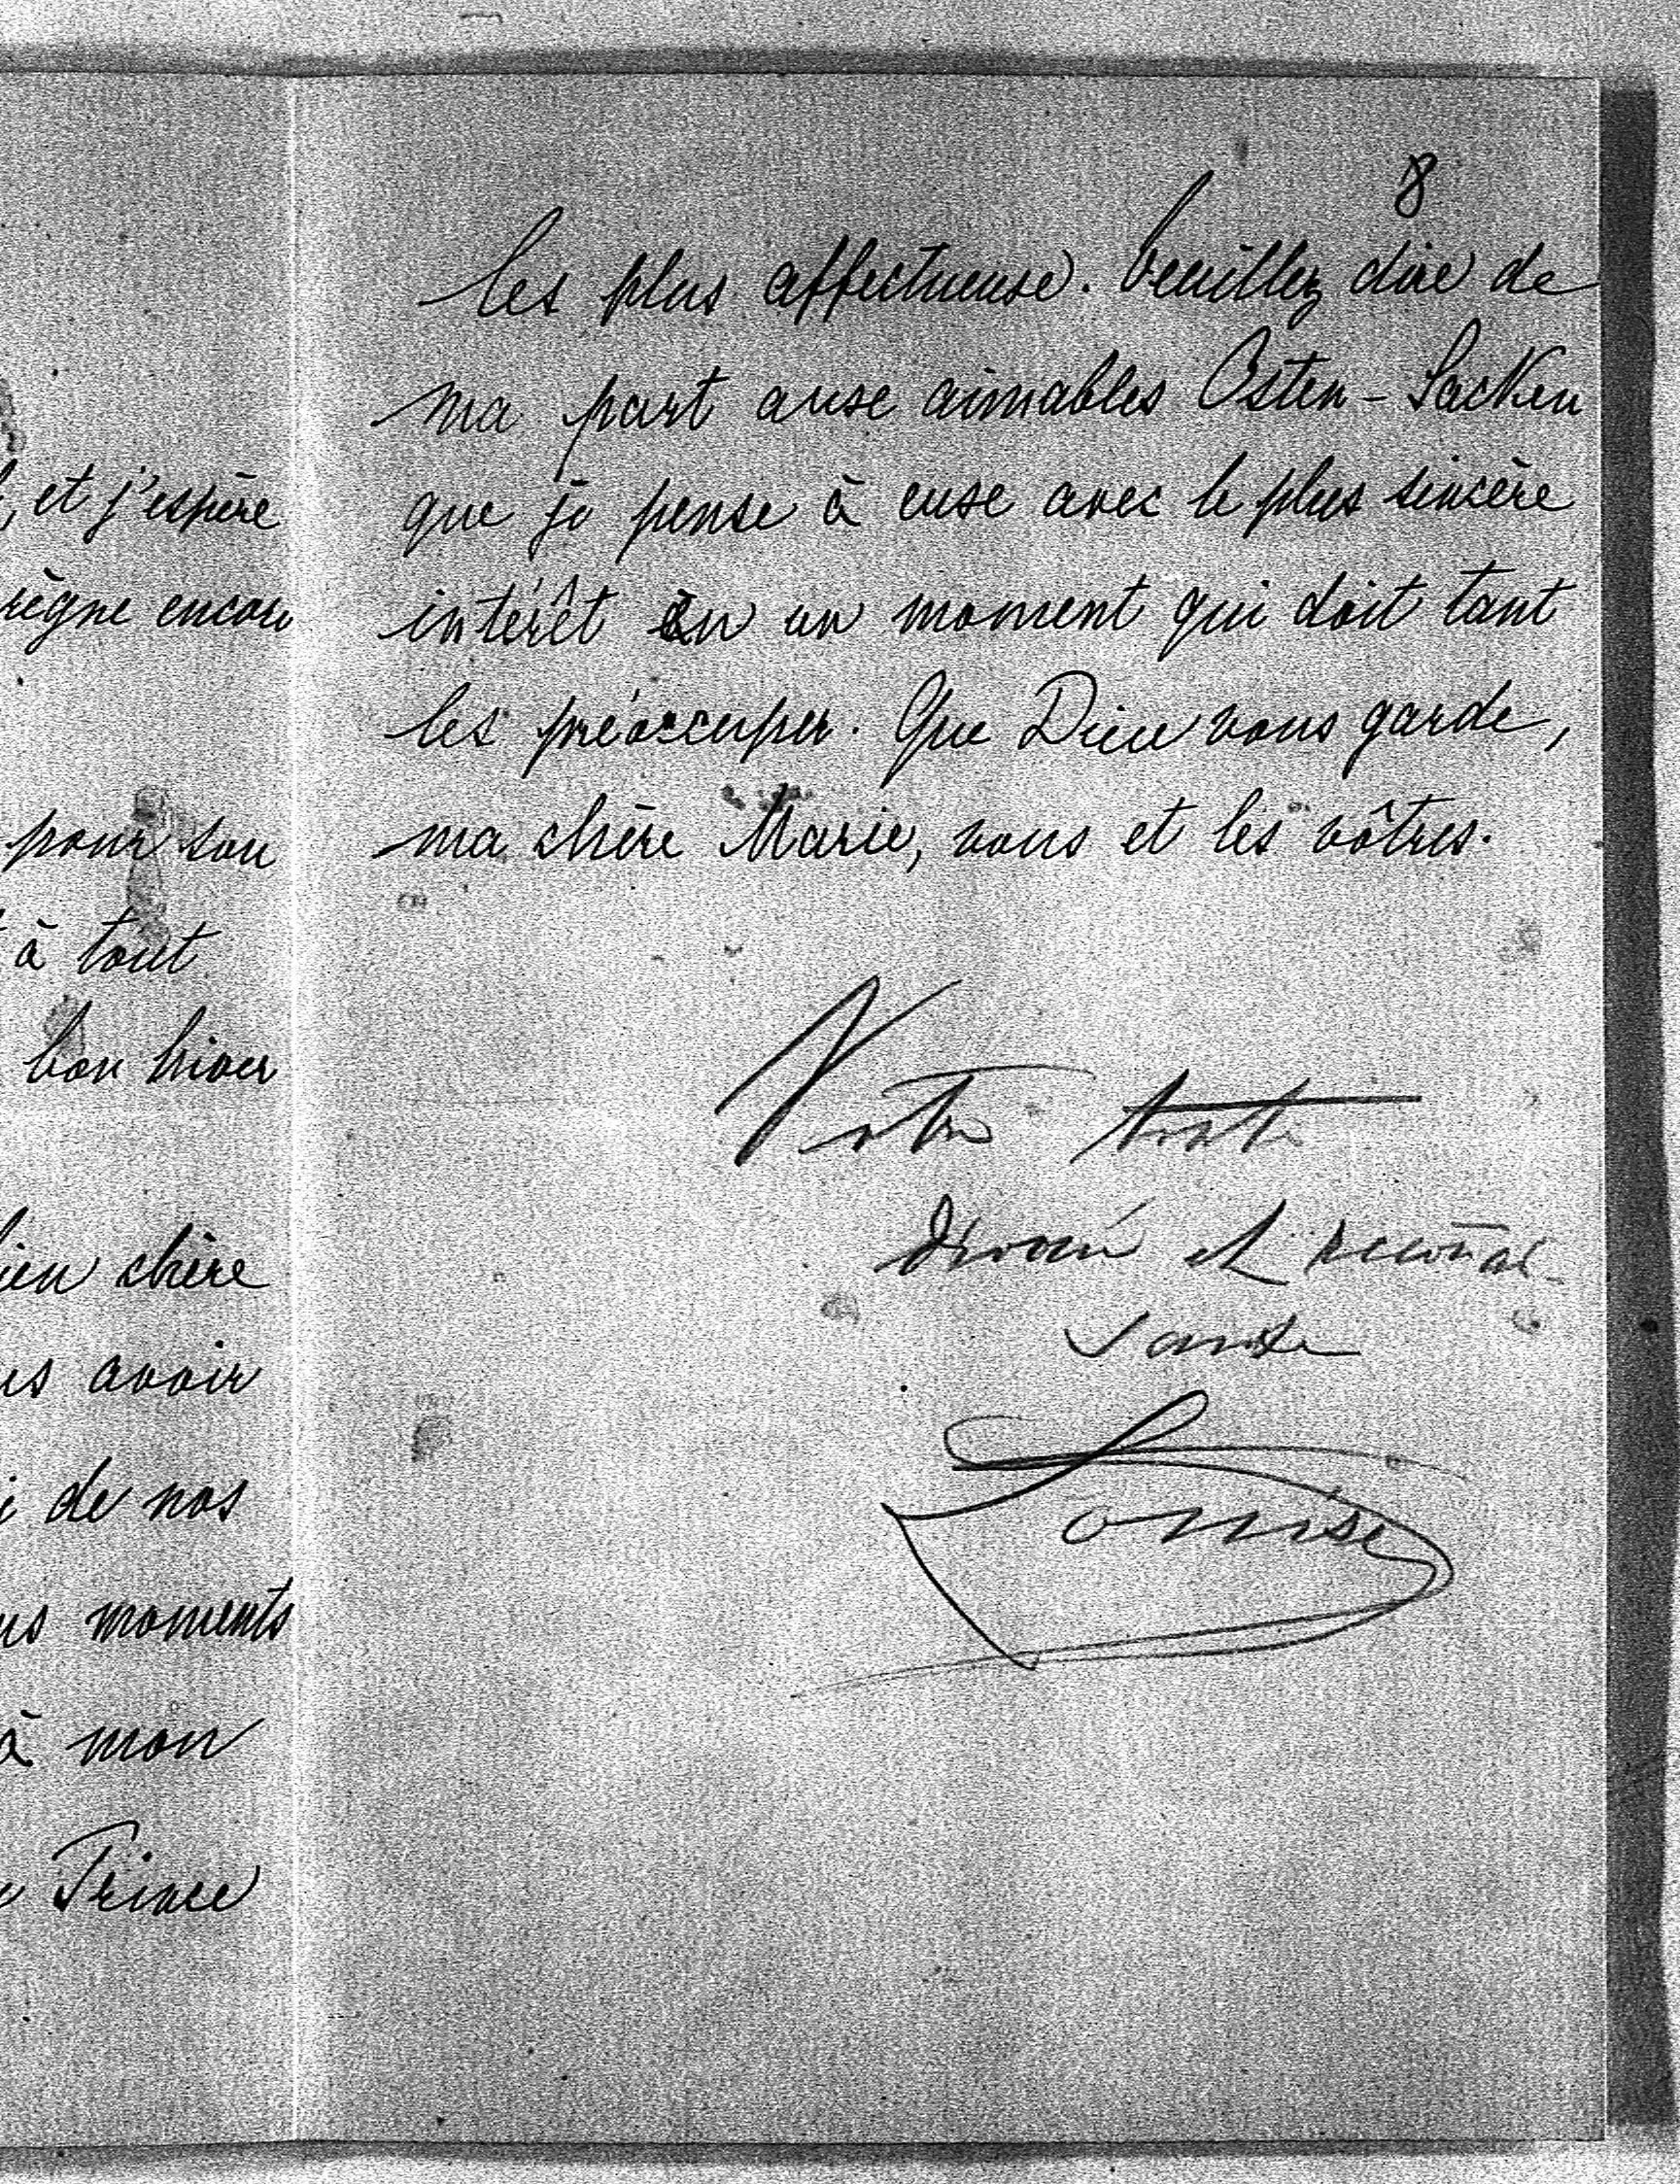 , et j'espère
règne encore
pour son
à tout
bon hiver
chère
avoir
de nos
moments
à mon
Prince
8
les plus affectueuse. Veuillez dire de
ma part aux aimables Osten-Sacken
que je pense à eux avec le plus sincère
intérêt en un moment qui doit tant
les préoccuper. Que Dieu vous garde,
ma chère Marie, vous et les vôtres.
Votre toute
dévouée et reconnais-
sante
Louise